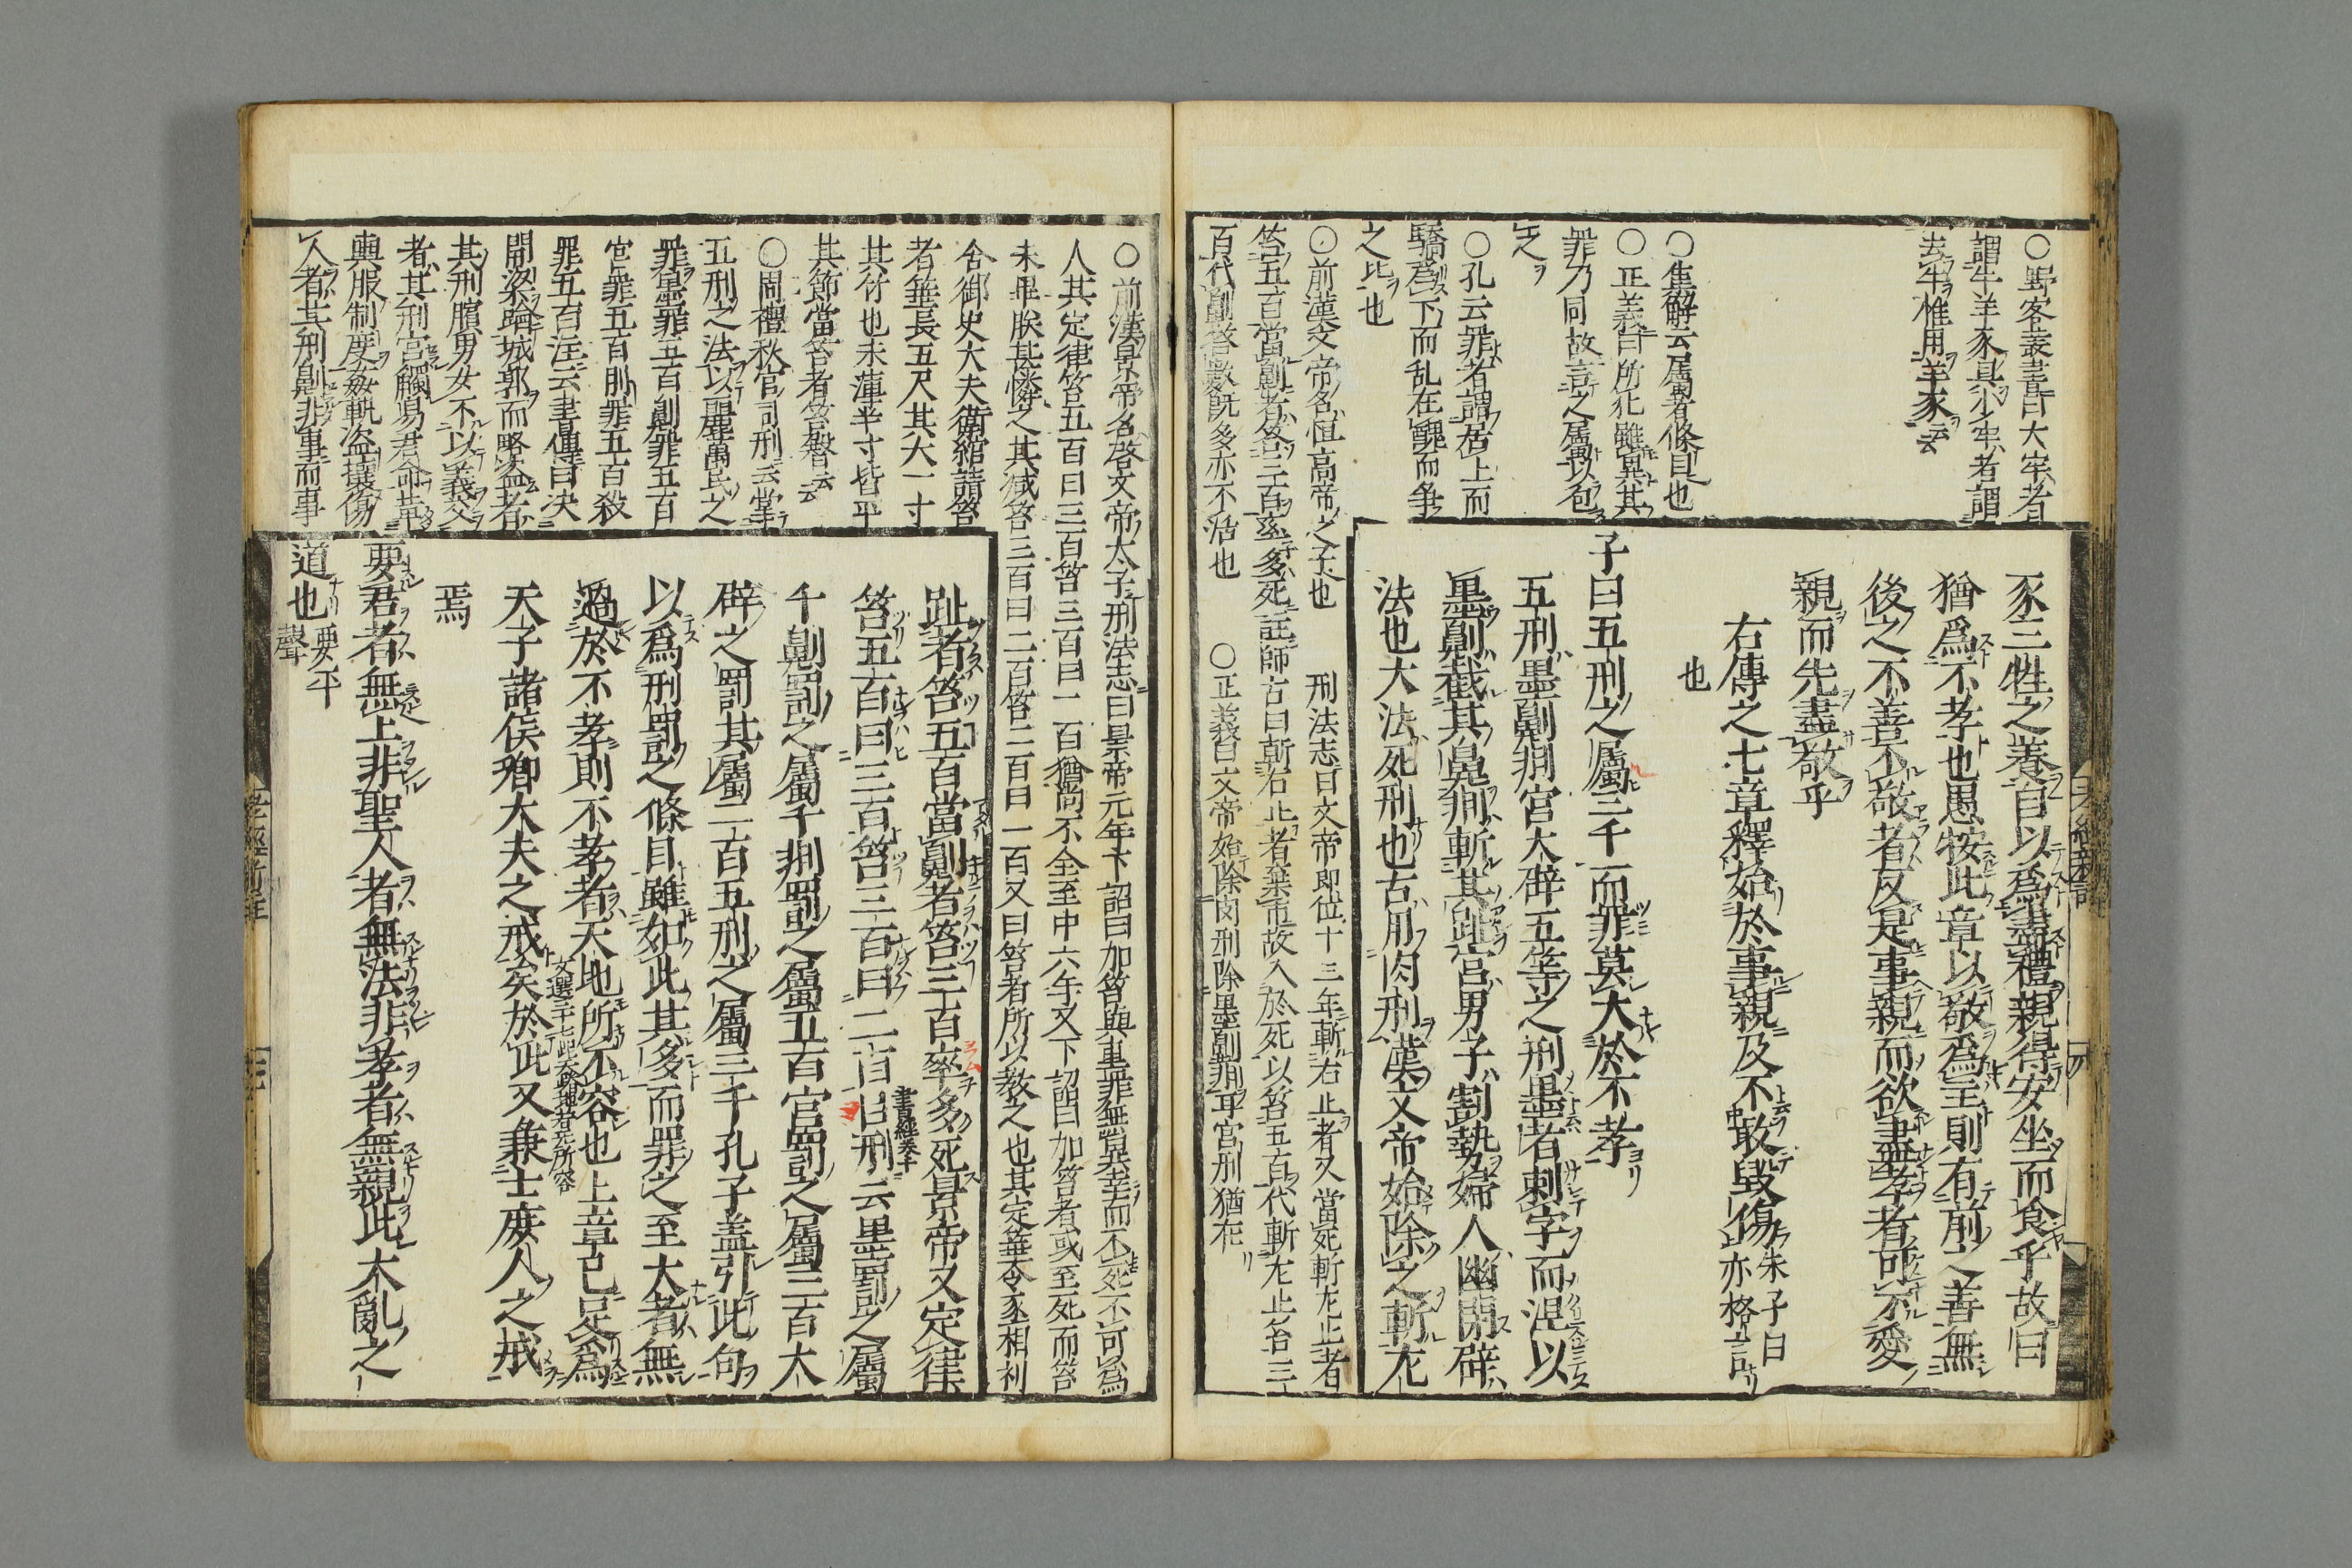 ○野客叢書曰大牢者
謂牛羊豕具少牢者謂
去牛惟用羊豕云云
○集解云属者條目也
○正義曰所犯雖異其
罪乃同故言之属以包
之
○孔云罪者謂居上而
驕爲下而乱在醜而争
之比也
○前漢文帝名恒高帝之子也 刑法志曰文帝即位十三年斬右止者又當死斬左止者
笞五百當劓者笞三百率多死註師古曰斬右止者棄市故入於死以笞五百代斬左止笞三
百代劓笞數既多亦不活也 ○正義曰文帝始除肉刑除墨劓剕耳宮刑猶在
豕三牲之養自以爲盡禮親得安坐而食乎故曰
猶爲不孝也愚按此章以敬爲至則有前之善無
後之不善不敬者反是事親而欲盡孝者可不愛
親而先盡敬乎
右傳之七章釋始於事親及不敢毀傷朱子曰亦格言
也
子曰五刑之屬三千而罪莫大於不孝
五刑墨劓剕宮大辟五等之刑墨者刺字而涅以
墨劓截其鼻剕斬其趾宮男子割勢婦人幽閉辟
法也大法死刑也古用肉刑漢文帝始除之斬左
○前漢景帝名啓文帝太子刑法志曰景帝元年下詔曰加笞與重罪無異幸而不死不可爲
人其定律笞五百曰三百笞三百曰二百猶尚不全至中六年又下詔曰加笞者或至死而笞
未畢朕甚憐之其減笞三百曰二百笞二百曰一百又曰笞者所以教之也其定箠令丞相刘
舍御史大夫衛綰請笞
者箠長五尺其大一寸
其竹也末薄半寸皆平
其節當笞者笞臀云云
○周禮秋官司刑云掌
五刑之法以麗萬民之
罪墨罪五百劓罪五百
宮罪五百刖罪五百殺
罪五百注云書傳曰决
開梁踰城郭而略盗者
其刑臏男女不以義交
者其刑宮觸易君命革
輿服制度姦軌盗攘傷
人者其刑劓非事而事
趾者笞五百當劓者笞三百率多死景帝又定律
笞五百曰三百笞三百曰二百呂刑云墨罰之屬
書經卷十
千劓罰之屬千剕罰之屬五百宮罰之屬三百大
辟之罰其屬二百五刑之屬三千孔子盖引此句
以爲刑罰之條目雖如此其多而罪之至大者無
過於不孝則不孝者天地所不容也上章已足爲
天子諸侯卿大夫之戒矣於此又兼士庶人之戒
焉
要君者無上非聖人者無法非孝者無親此大亂之
道也要平聲
孝經新註